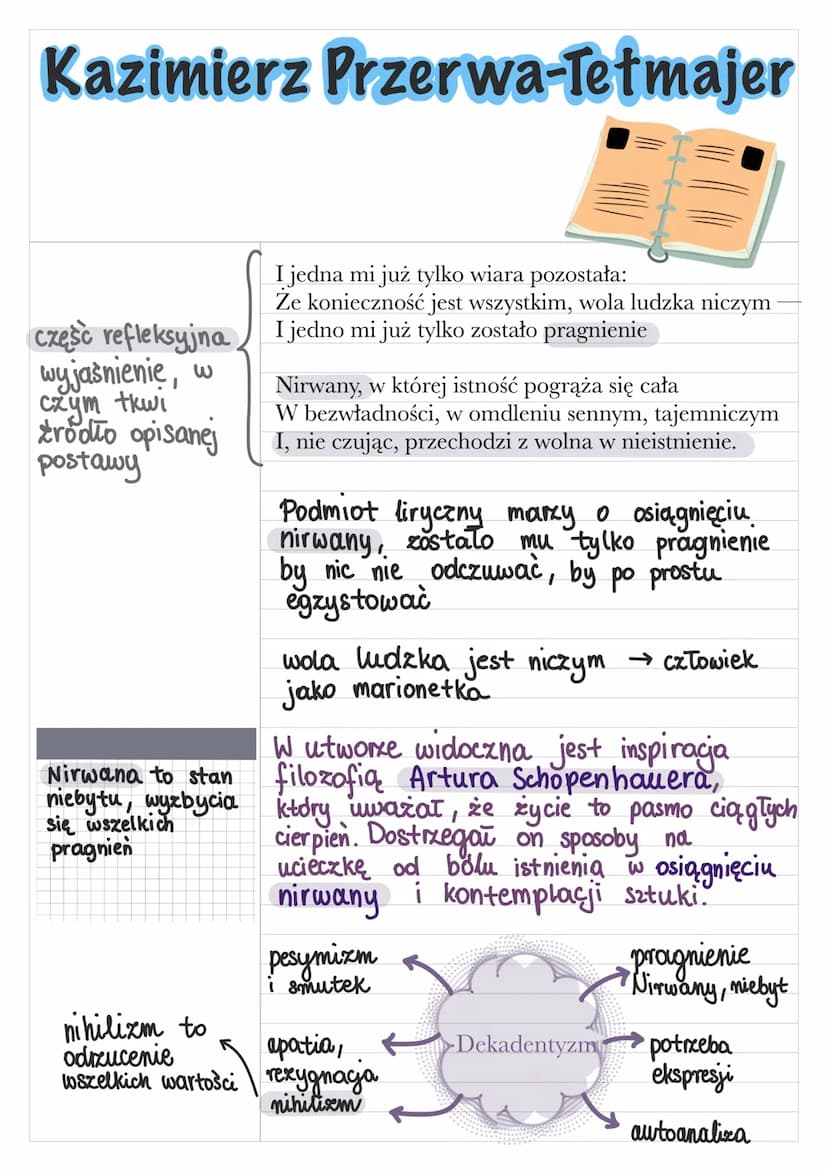 Kazimierz Przerwa-Tetmajer
I jedna mi już tylko wiara pozostała:
Że konieczność jest wszystkim, wola ludzka niczym —
I jedno mi już tylko zostało pragnienie
Nirwany, w której istność pogrąża się cała
W bezwładności, w omdleniu sennym, tajemniczym
I, nie czując, przechodzi z wolna w nieistnienie.
część refleksyjna
wyjaśnienie, w
czym tkwi
źródło opisanej
postawy
Podmiot liryczny marzy o osiągnięciu
nirwany, zostało mu tylko pragnienie
by nic nie odczuwać, by po prostu
egzystować
wola ludzka jest niczym → człowiek
jako marionetka
Nirwana to stan
niebytu, wyzbycia
się wszelkich
pragnień
W utworze widoczna jest inspiracja
filozofią Artura Schopenhauera,
który uważał, że życie to pasmo ciągłych
cierpień. Dostrzegał on sposoby na
ucieczkę od bólu istnienia w osiągnięciu
nirwany i kontemplacji sztuki.
Dekadentyzm
pesymizm
i smutek
apatia,
rezygnacja
nihilizm
nihilizm to
odrzucenie
wszelkich wartości
pragnienie
Nirwany, niebyt
potrzeba
ekspresji
autoanaliza